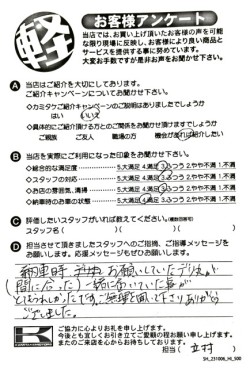 軽
お客様アンケート
当店では、お買い上げ頂いたお客様の声を可能
な限り現場に反映し、お客様により良い商品と
サービスを提供する事に努めています。
大変お手数ですが是非お声をお聞かせ下さい。
A 当店はご紹介を大切にしております。
ご紹介キャンペーンについてお聞かせ下さい。
◇カミタケご紹介キャンペーンのご説明はありましたでしょうか
はい いいえ
◇具体的にご紹介頂ける方とのご関係をお聞かせ頂けますでしょうか
ご親族 ご友人 職場の方 機会があれば紹介したい
B 当店を実際にご利用になった印象をお聞かせ下さい。
◇総合的な満足度 5.大満足 4.満足 3.ふつう 2.やや不満 1.不満
◇スタッフの対応 5.大満足 4.満足 3.ふつう 2.やや不満 1.不満
◇お店の雰囲気、清掃 5.大満足 4.満足 3.ふつう 2.やや不満 1.不満
◇納車時のお車の状態 5.大満足 4.満足 3.ふつう 2.やや不満 1.不満
C 評価したいスタッフがいれば教えてください。(複数回答可)
スタッフ名( )( )
D 担当させて頂きましたスタッフへのご指摘、ご指導メッセージを
お願いします。応援メッセージもぜひお願いします。
納車時 お願いしていた
(間に合った)一緒に
ございました。
ご協力に心よりお礼を申し上げます。
今後とも宜しくお引き立てご愛顧の程お願い申し上げます。
またのご来店を心からお待ちしております。
担当( 立村 )